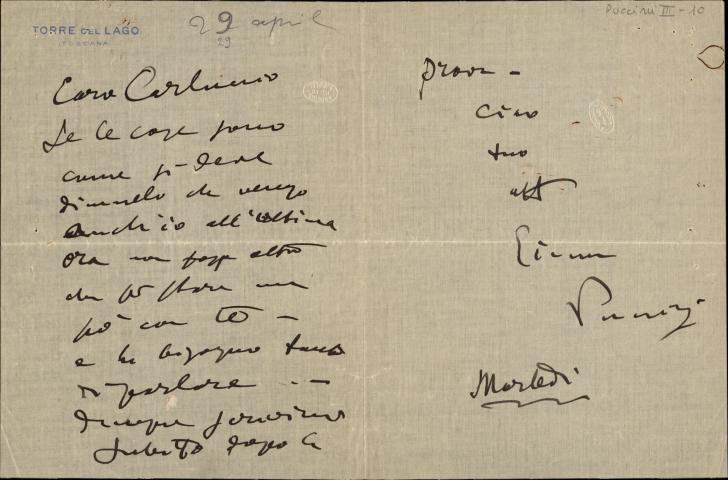 TORRE DEL LAGO
TOSCANA
29 april
29
Puccini III - 10
Caro Carluccio
Se le cose sono
come si deve
dimmelo che vengo
anch'io all'ultima
ora non foss'altro
che per stare un
po' con te -
e ho bisogno
di parlare ... -
dunque scrivimi
subito dopo la
prova -
Ciao
tuo
aff
Puccini
Martedi